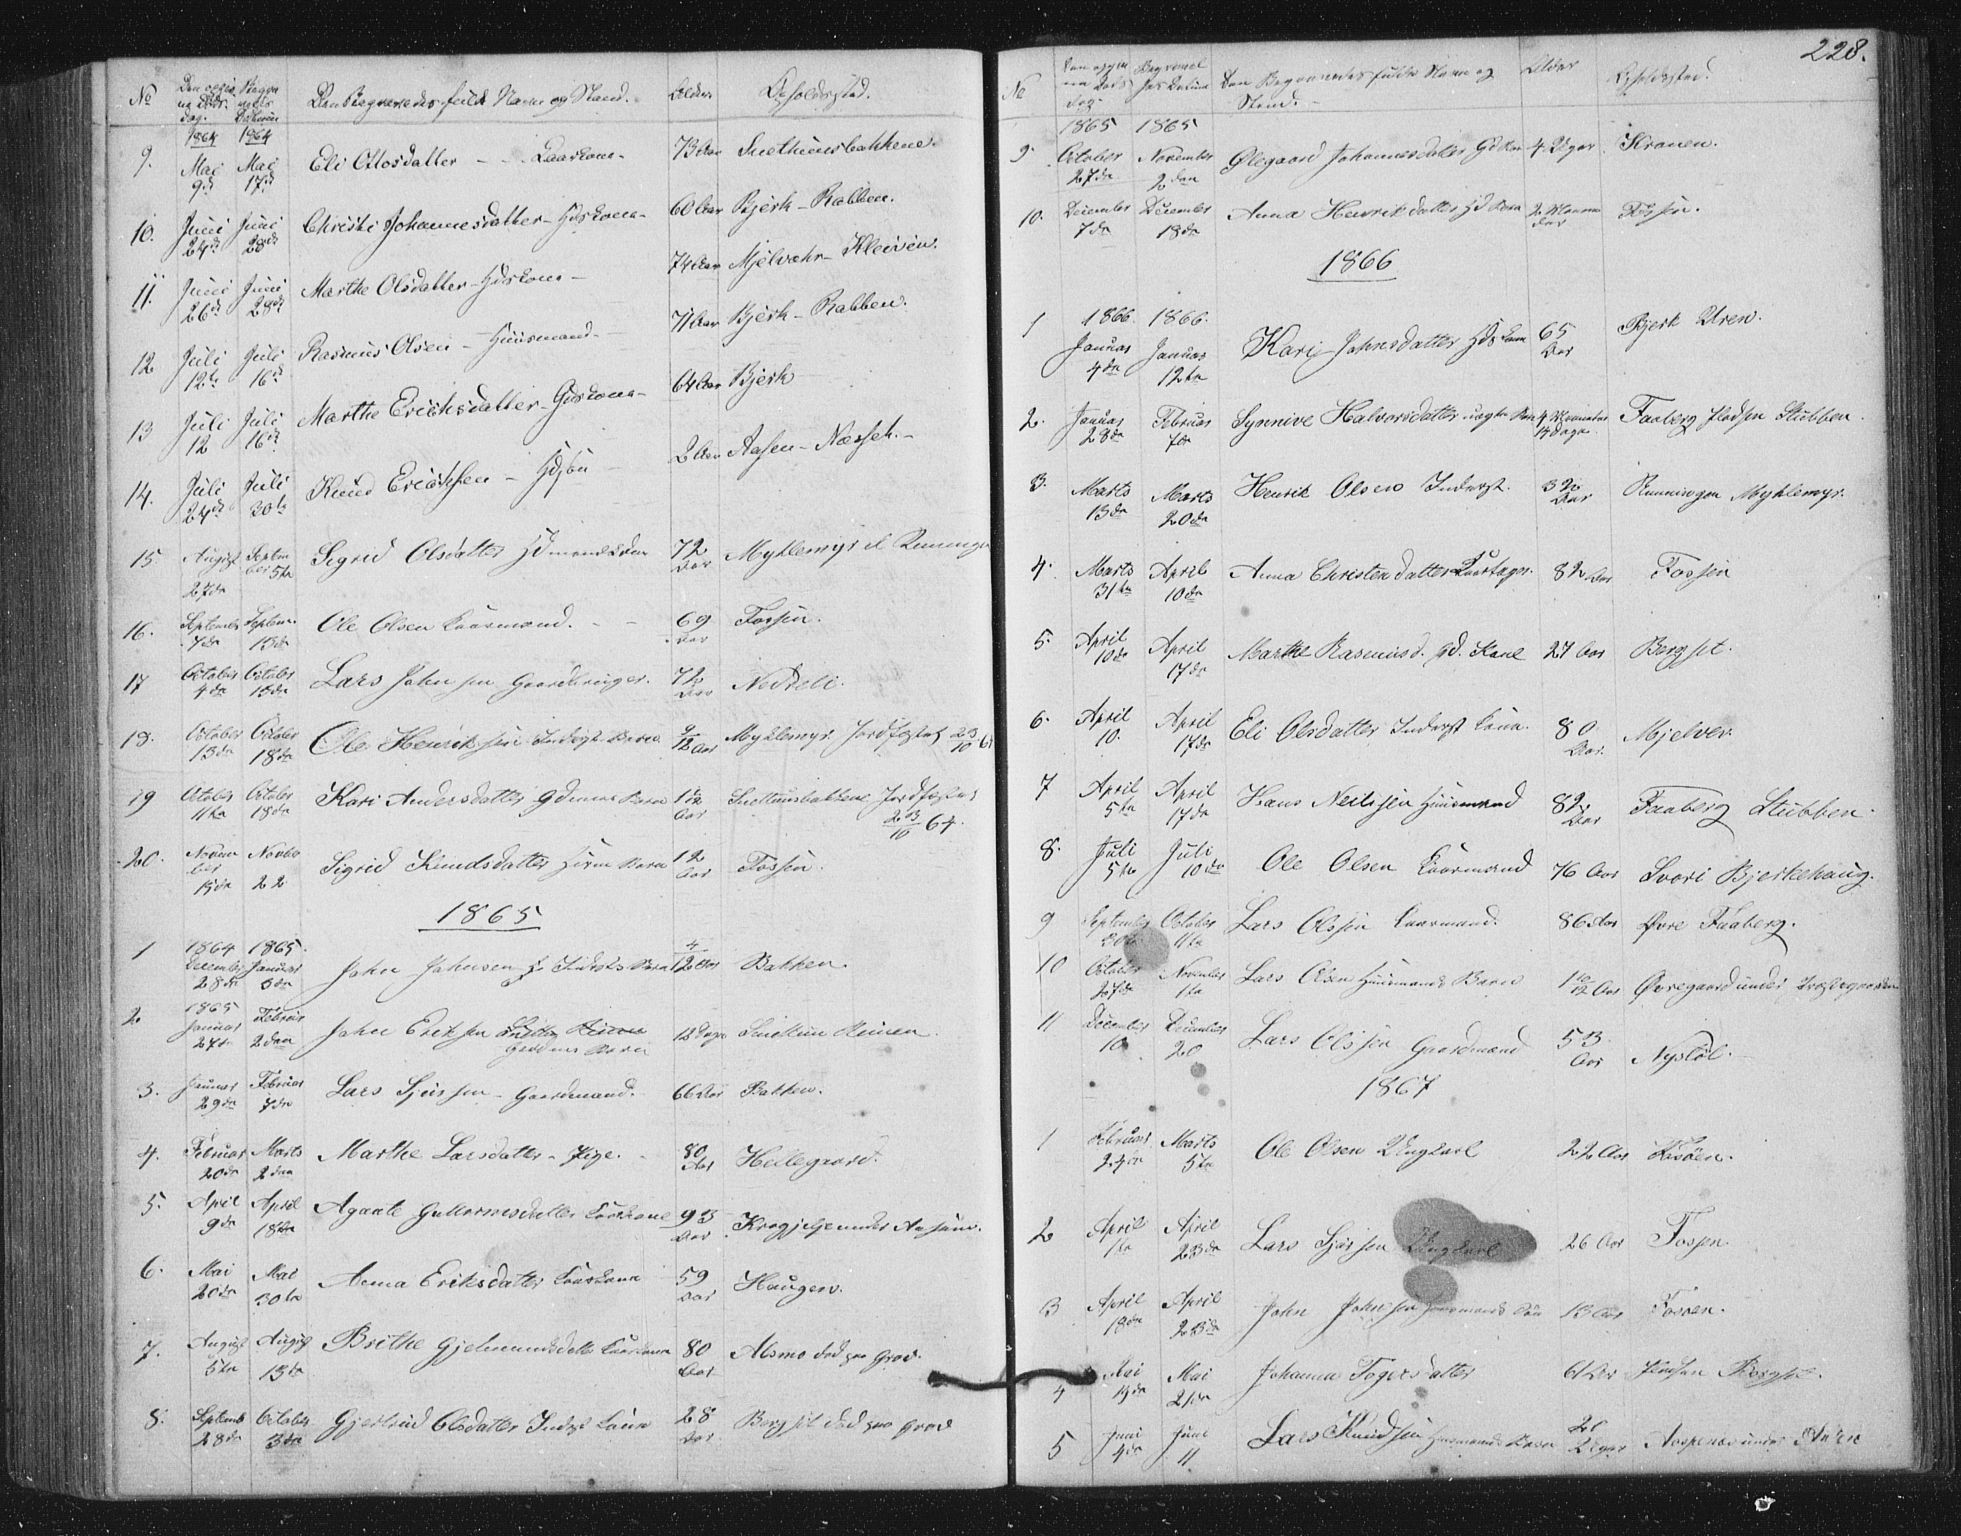 228.
No Den egne Døds dag. Begravelses Datum Den Begravedes fulde Navn og Stand. Alder. Opholdssted.
1864 1864
9. Mai 9de Mai 17de Eli Ottosdatter - Kaarkone - 73 Aar
10. Juni 24de Juni 28de Christi Johannesdatter - Hdskone - 60 Aar Bjerk - Rabben.
11. Juni 26de Juni 28de Marthe Olsdatter - Hdskone - 74 Aar Mjelvæhr - Kleiven.
12 Juli 12te Juli 16de Rasmus Olsen - Huusmand - 71 Aar Bjerk - Rabben.
13 Juli 12 Juli 16de Marthe Erichsdatter - Gdskone - 64 Aar Bjerk
14. Juli 24de Juli 30te Knud Erichsen - 2 Aar Aasen - Næsset. -
15. August 27de September 5te Sigrid Olsdatter 72 Aar Myklemyr
16. September 7de Septem. 13de Ole Olsen Kaarmand. 69 Aar Fossen.
17 October 4de October 18de Lars Johnsen Gaardbruger. 72 Aar Nedreli.
18. October 13de October 18de Ole Henriksen Inderst Barn Aar Myklemyr Jordfæstet
19 October 11te October 18de Kari Andersdatter Gdmans Barn Aar Jordfæstet 64.
20. November 15de Novbr 22 Sigrid Knudsdatter Barn 12 Aar Fossen.
1865
1 1864 December 28de 1865. Januar 3de John Johnsen Inderst Barn 4/12 Aar Bakken.
2 1865 Januar 27de Februar 2den John Eriksen Gaardmans Barn 12 Dage
3. Januar 29de Februar 7de Lars Sjursen - Gaardmand. 66 Aar Bakken.
4. Februar 20de Marts 2den Marthe Larsdatter - Pige. 80 Aar Hellegaard.
5. April 9de April 18de Agaate Guttormesdatter Kaarkone 93 Aar
6. Mai 20de Mai 30te Anna Eriksdatter Kaarkone 59 Aar Haugen.
7. August 5te August 15de Brithe Gjelmundsdatter Kaarkone 80 Aar Alsmo død paa Grov.
8. Septemb 28de October 3de Gjertrud Olsdatter Inderst Kone 28 Aar Bergset død paa Grov
No Den egne Døds dag Begravelses Datum Den Begravedes fulde Navn og Stand. - Alder Opholdssted.
1865 1865
9. October 27de November 2den Ølegaard Johannesdatter 4 Uger Kronen.
10. December 7de December 18de Anna Henrikdatter Fossen.
1866
1866. 1866.
1 Januar 4de Januar 12te Kari Johnsdatter Hds Kone 65 Aar Bjerk Uren.
2. Januar 28de Februar 7de Synneve Halvorsdatter uægte Barn 4 Maaneder Dage Faaberg Pladsen Stubben.
3. Marts 13de Marts 20de Henrik Olsen Inderst. 32 Aar Myklemyr.
4. Marts 31te April 10de Anna Christendatter 82 Aar Fossen
5. April 10de April 17de Marthe Rasmusd. Gd. Kone 27 Aar Bergset.
6. April 10. April 17de Eli Olsdatter Inderst Kone. 80 Aar. Mjelver
7 April 5te April 17de Hans Neilssen Huusmand 82 Aar Faaberg Stubben.
8. Juli 5te Juli 10de Ole Olsen Kaarmand 76 Aar Svori Bjerkehaug.
9 September October 11te Lars Olssen Kaarmand. 86 Aar Øvre Faaberg.
10 October 27de November 1te Lars Olsen Huusmands Barn 1 10/12 Aar Øvregaard under
11 December 10 December 20 Lars Olssen Gaardmand 53 Aar Nystøl.
1867
1 Februar 24de Marts 5te Ole Olsen Ungkarl 22 Aar
2 April 1te April 23de Lars Sjursen Ungkarl 26 Aar Fossen
3 April 18de April 23de John Johnsen 13 Aar
4 Mai Mai 21de Johanna Togersdatter 61 Aar Bergset.
5 Juni 4de Juni 11 Lars Knudsen Husmands Barn 20 Uger